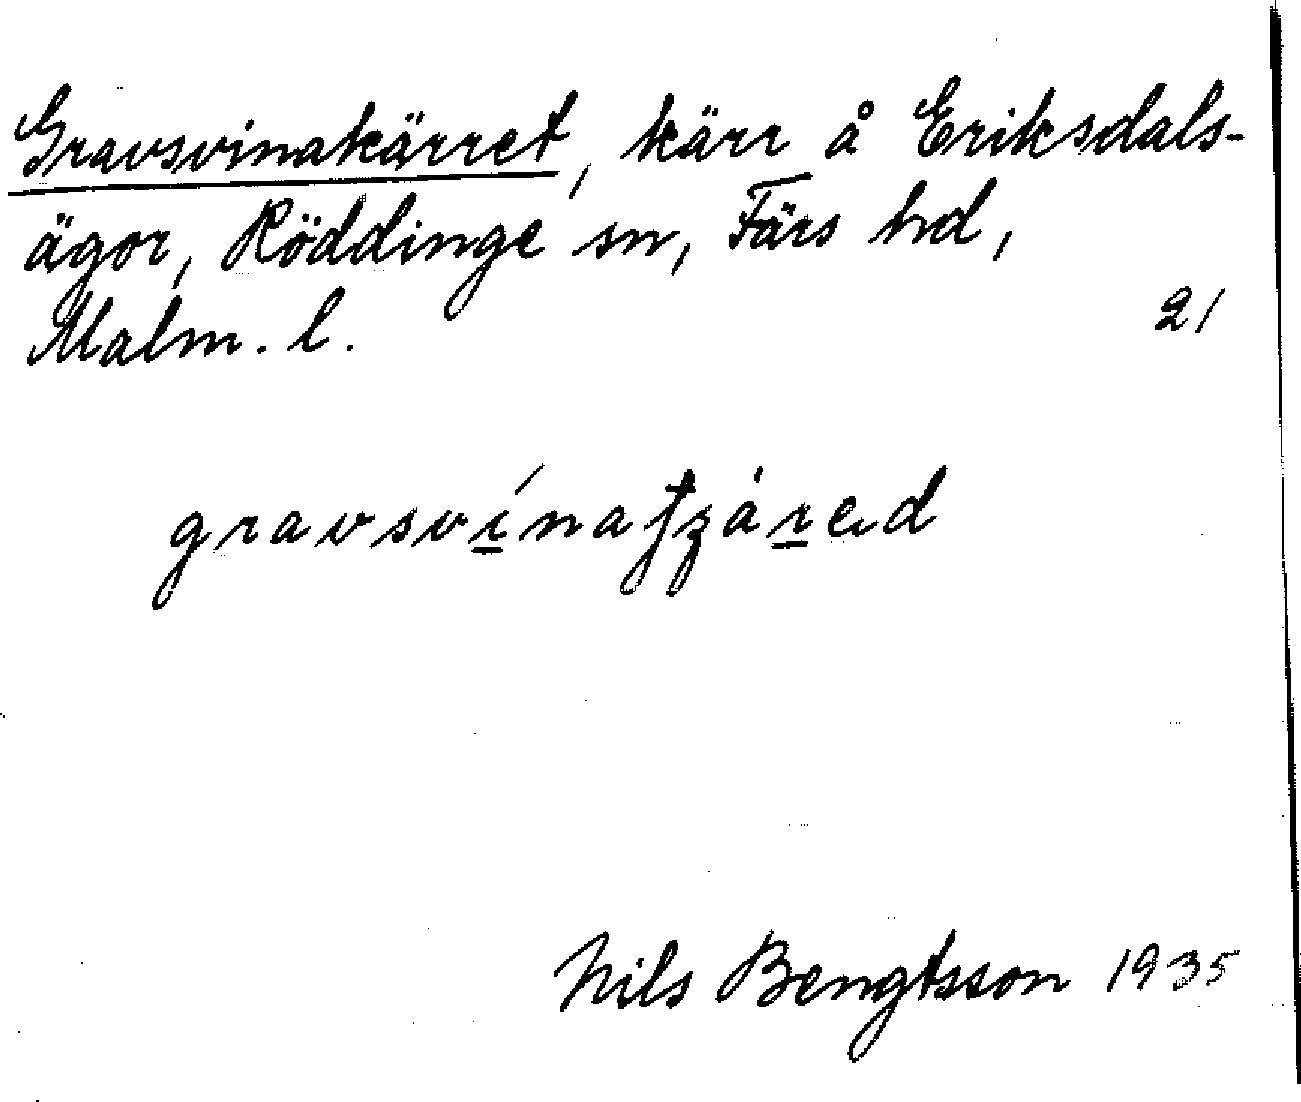 Gravsvinakärret, kärr å Eriksdals-
ägor, Röddinge sn, Färs hd,
Malm. l. 21
Nils Bengtsson 1935